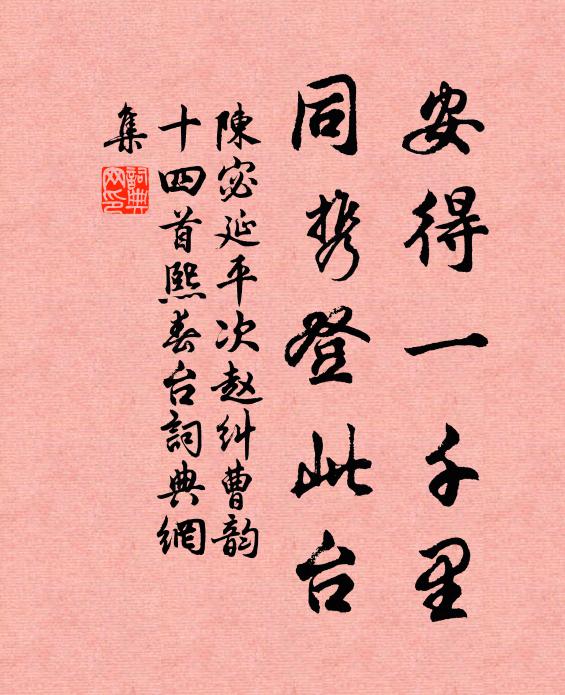 安得一千里
同携登此台
陳宓延平次赵纠曹韵
十四首熙春台詞典網
集
詞典网印